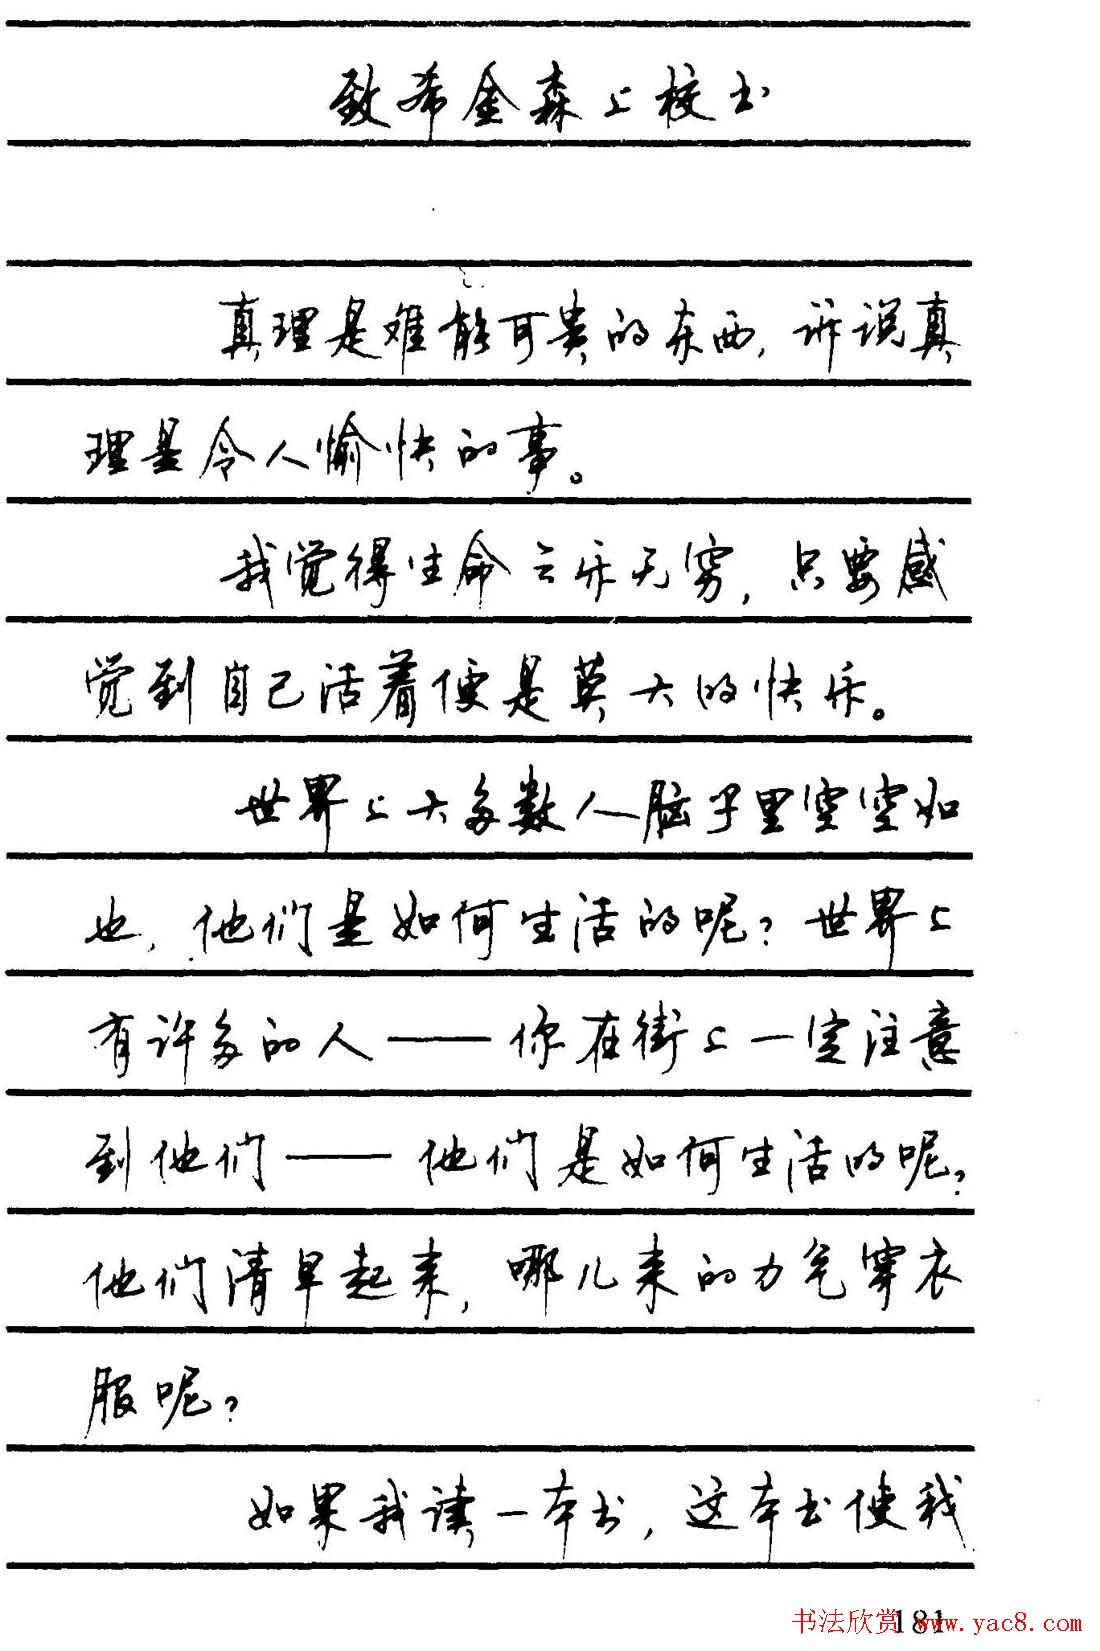 致希金森上校书
真理是难能可贵的东西，诉说真
理是令人愉快的事。
我觉得生命云亦无穷，只要感
觉到自己活着便是莫大的快乐。
世界上大多数人脑子里空空如
也，他们是如何生活的呢？世界上
有许多的人——你在街上一定注意
到他们——他们是如何生活的呢？
他们清早起来，哪儿来的力气穿衣
服呢？
如果我读一本书，这本书使我
181
书法欣赏 www.yac8.com